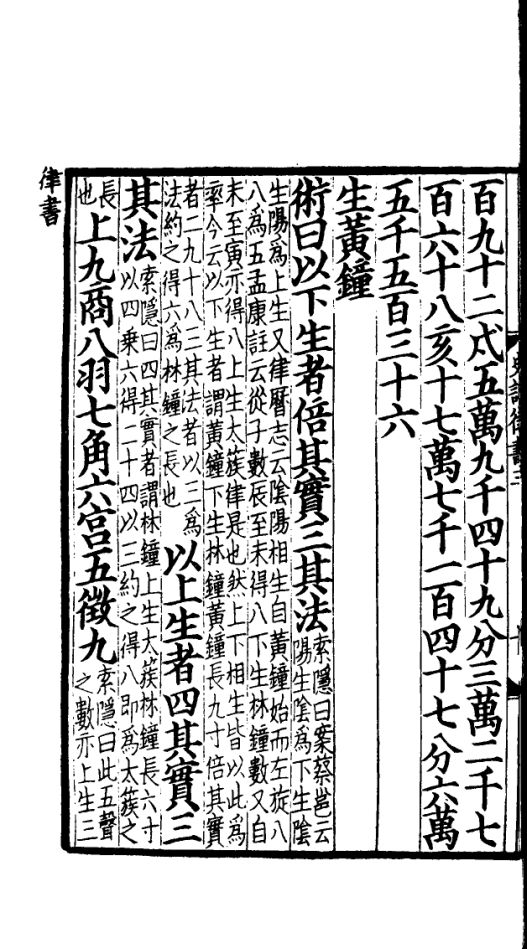 百九十二戌五萬九千四十九分三萬二千七
百六十八亥十七萬七千一百四十七分六萬
五千五百三十六
生黃鐘
術曰以下生者倍其實三其法
索隱曰案蔡邕云
陽生陰爲下生陰
生陽爲上生又律曆志云陰陽相生自黃鐘始而左旋八
八爲五孟康註云從子數辰至未得八下生林鐘數又自
未至寅亦得八上生太簇律是也然上下相生皆以此爲
率今云以下生者謂黃鐘下生林鐘黃鐘長九寸倍其實
者二九十八三其法者以三爲
法約之得六爲林鐘之長也
以上生者四其實三
其法
索隱曰四其實者謂林鐘上生太簇林鐘長六寸
以四乘六得二十四以三約之得八即爲太簇之
長
也
上九商八羽七角六宮五徵九
索隱曰此五聲
之數亦上生三
律書